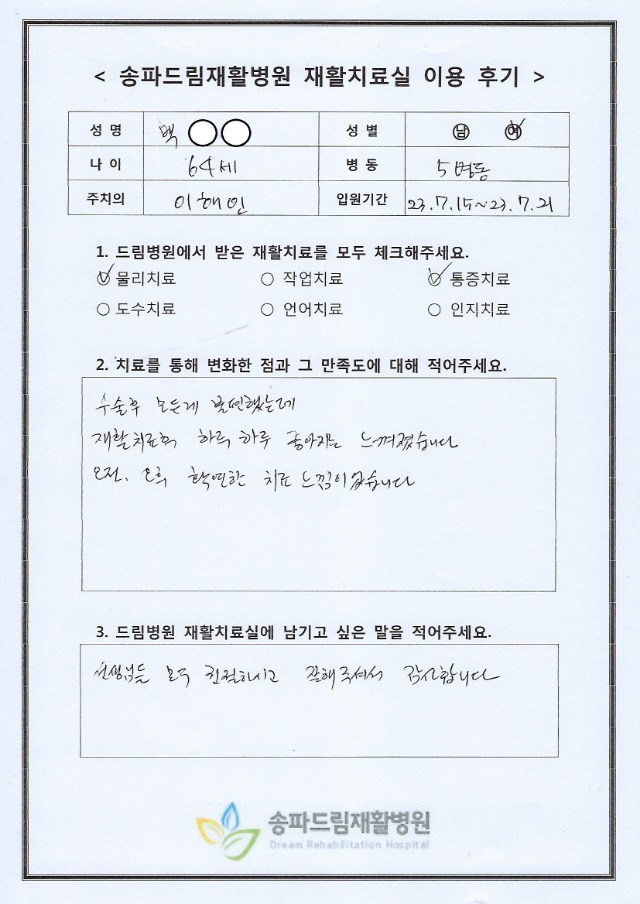 < 송파드림재활병원 재활치료실 이용 후기 >
성 명 백 성 별 남 여
나 이 64세 병 동 5병동
주치의 이해인 입원기간 23.7.15~23.7.21
1. 드림병원에서 받은 재활치료를 모두 체크해주세요.
물리치료 작업치료 통증치료
도수치료 언어치료 인지치료
2. 치료를 통해 변화한 점과 그 만족도에 대해 적어주세요.
수술후 모든게 불편했는데
재활치료후 하루 하루 좋아지는 느껴졌습니다
오전, 오후 확연한 치료 느낌이 있습니다
3. 드림병원 재활치료실에 남기고 싶은 말을 적어주세요.
선생님들 모두 친절하시고 잘해주셔서 감사합니다
송파드림재활병원
Dream Rehabilitation Hospital